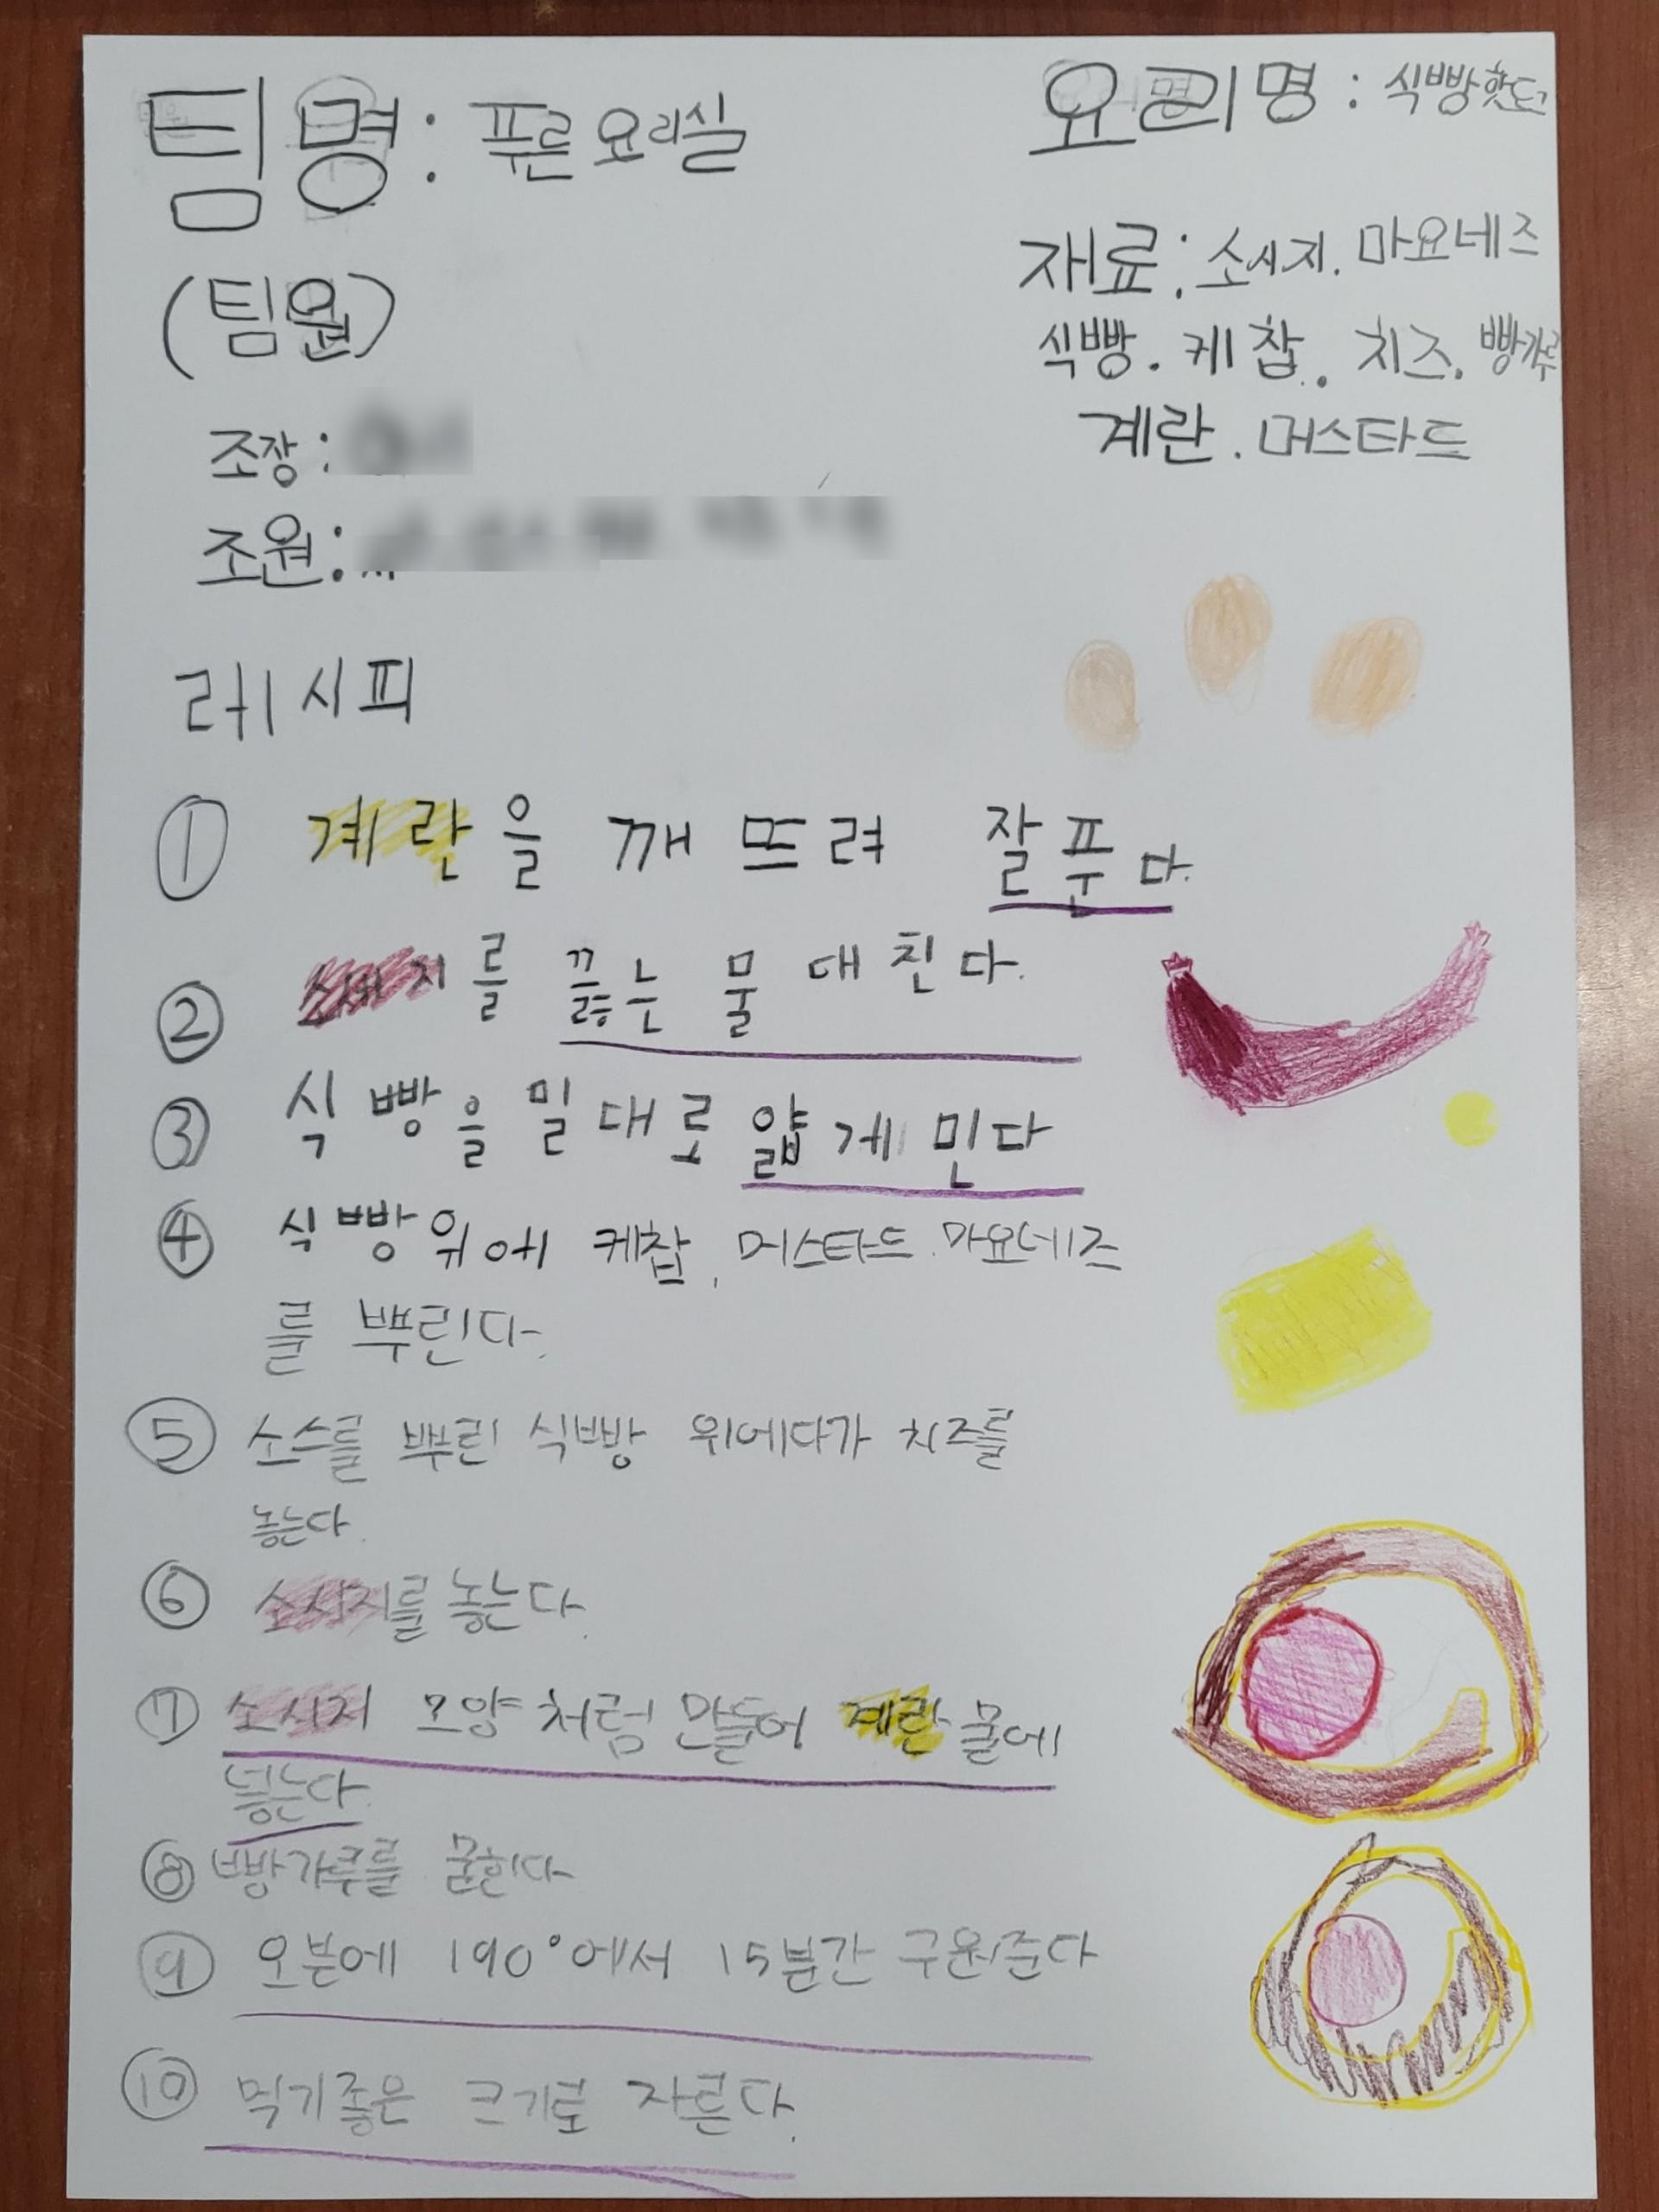 팀명: 푸른요리실
(팀원)
조장:
조원:
요리명: 식빵핫도그
재료: 소시지. 마요네즈
식빵. 케찹. 치즈. 빵가루
계란. 머스타드
레시피
① 계란을 깨뜨려 잘푼다.
② 소세지를 끓는 물 대친다.
③ 식빵을 밀대로 얇게 민다
④ 식빵위에 케찹, 머스타드. 마요네즈
를 뿌린다.
⑤ 소스를 뿌린 식빵 위에다가 치즈를
놓는다.
⑥ 소시지를 놓는다.
⑦ 소시지 모양처럼 만들어 계란물에
넣는다.
⑧ 빵가루를 묻힌다
⑨ 오븐에 190°에서 15분간 구워준다
⑩ 먹기좋은 크기로 자른다.